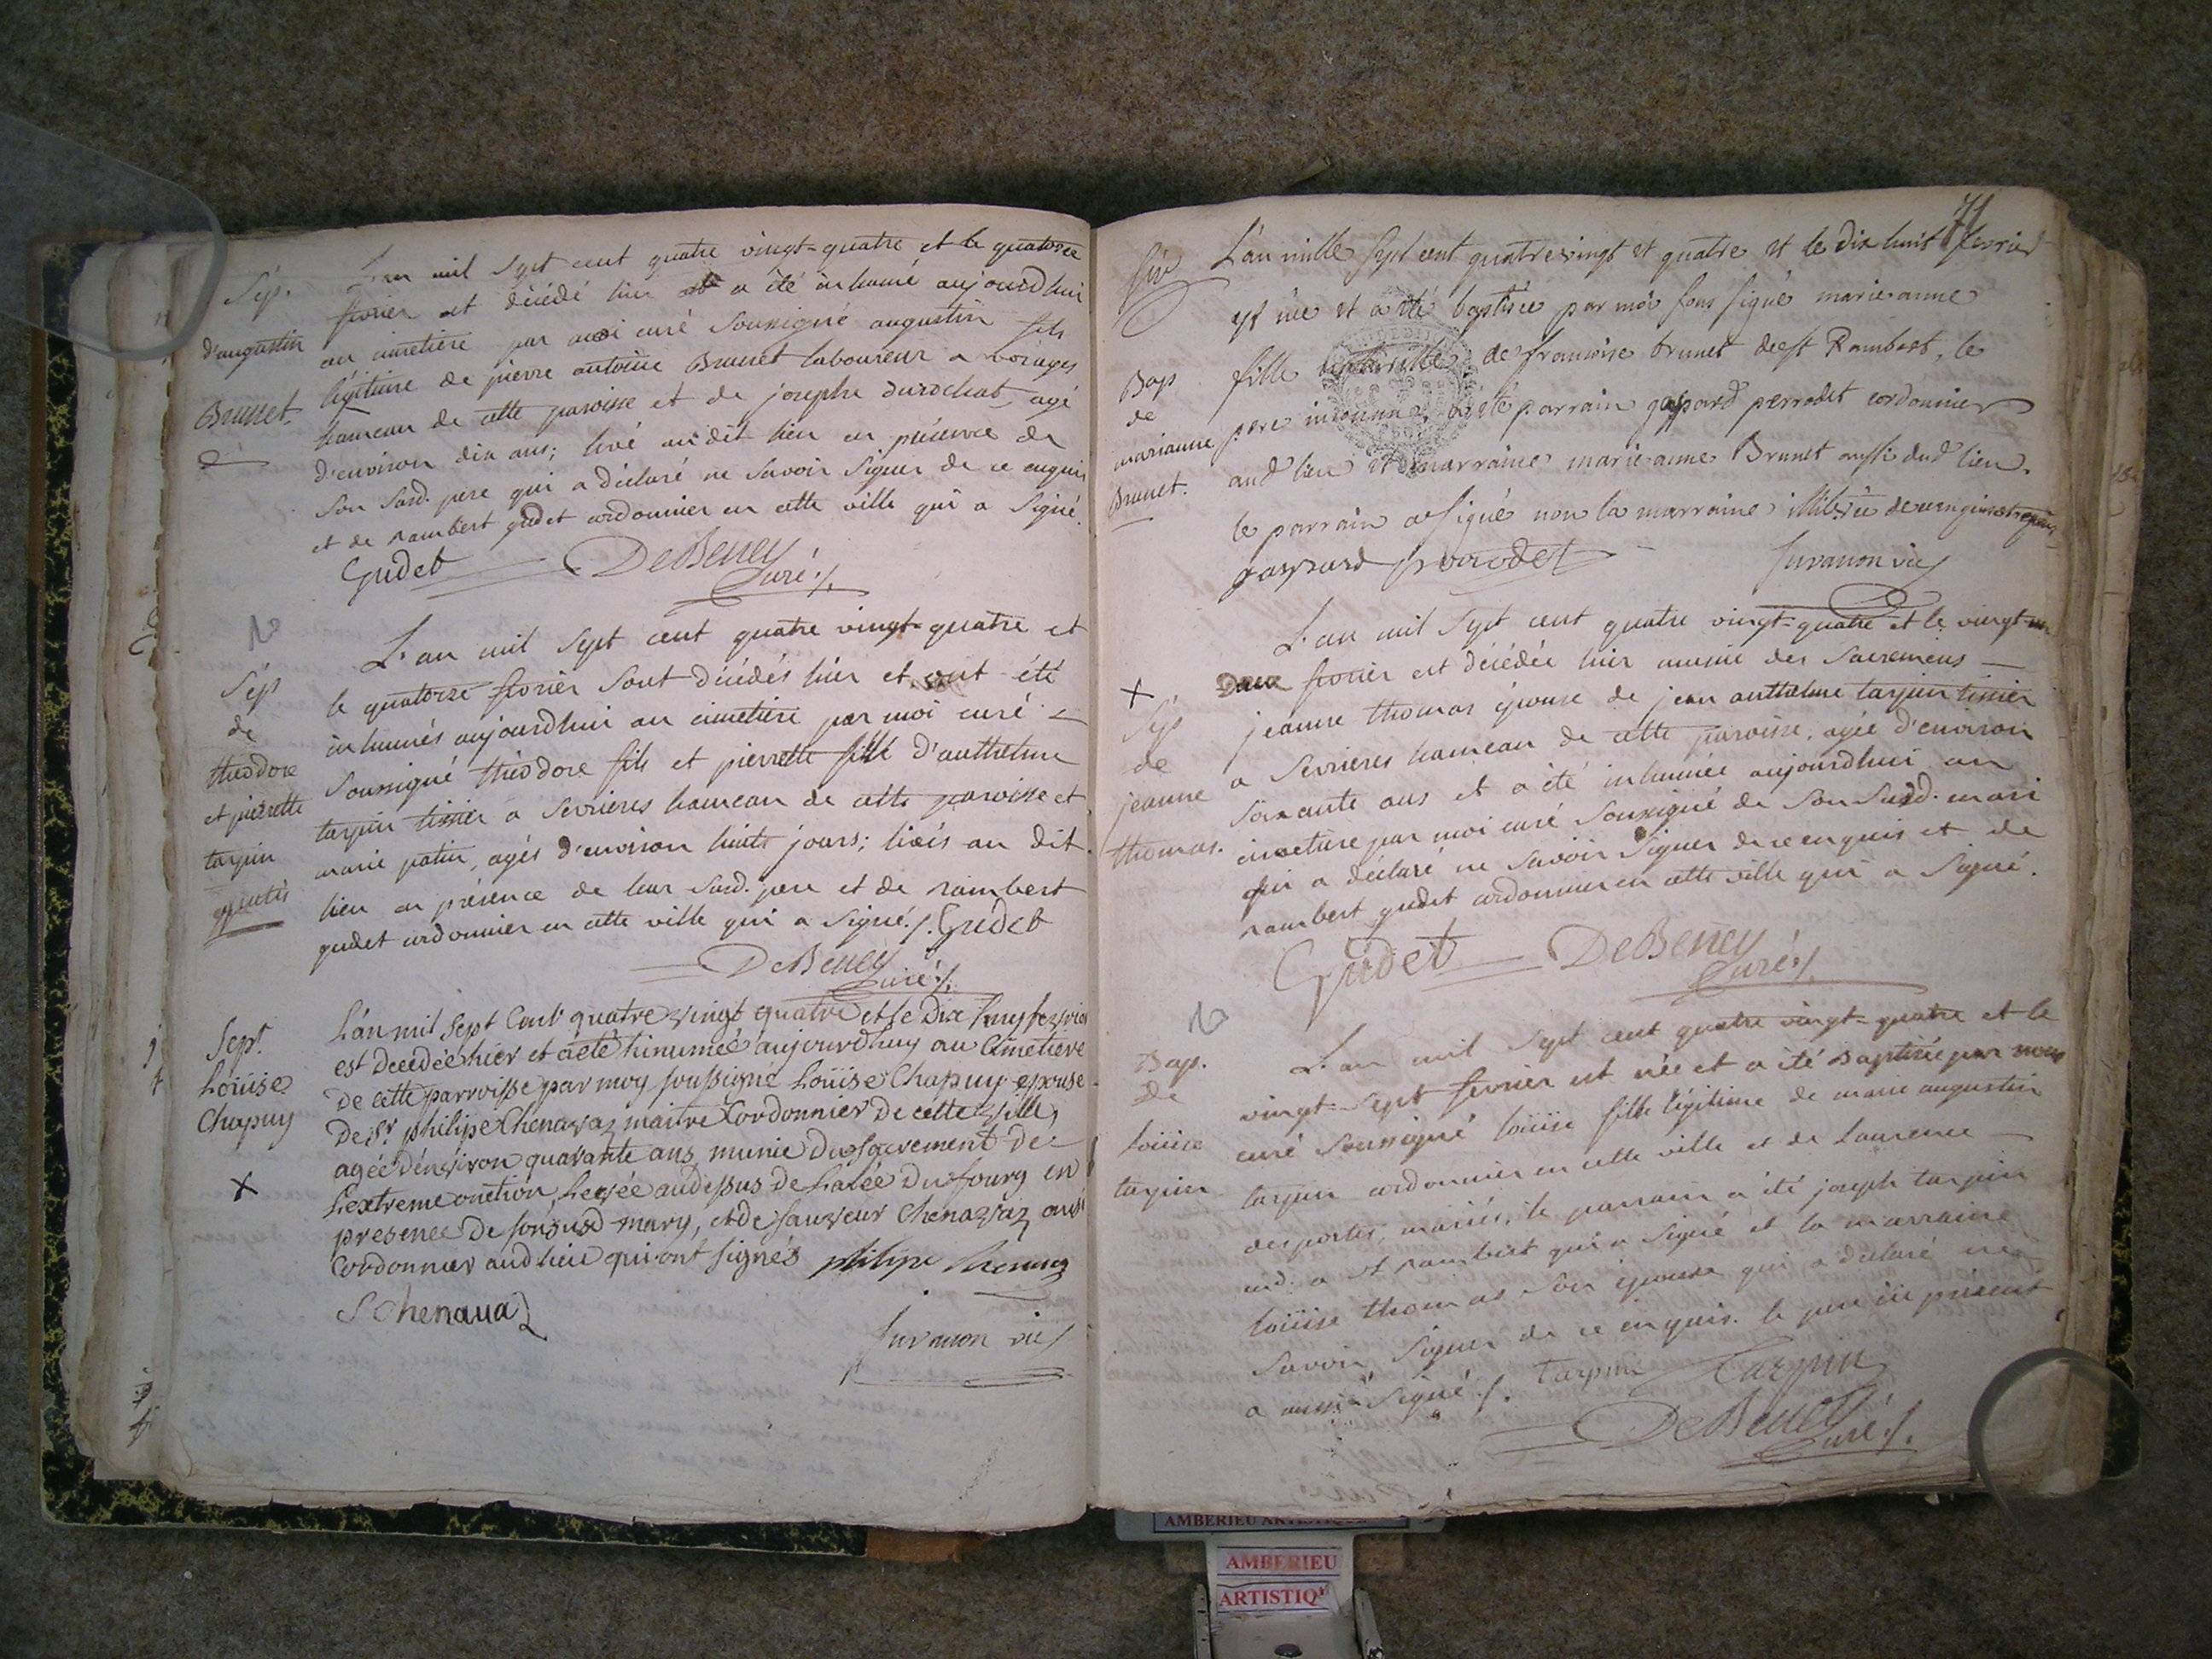 Sép.
d'augustin
Brunet.
L'an mil sept cent quatre vingt=quatre et le quatorze
fevrier est décédé hier a été inhumé aujourdhui
au cimetiere par moi curé soussigné augustin fils
légitime de pierre antoine Brunet laboureur a
hameau de cette paroisse et de josephe durochat, agé
d'environ dix ans; levé au dit lieu en présence de
son susd. pere qui a déclaré ne savoir signer de ce enquis
et de rambert gudet cordonnier en cette ville qui a signé.
Gudet DeBeney
Curé ./.
Sép
de
théodore
et pierrette
tarpin
L'an mil sept cent quatre vingt=quatre et
le quatorze fevrier sont décédés hier et ont été
inhumés aujourdhui au cimetiere par moi curé
soussigné théodore fils et pierrette fille d'anthelme
tarpin tissier a serrieres hameau de cette paroisse et
marie patin, agés d'environ huits jours; levés au dit
lieu en présence de leur susd. pere et de rambert
gudet cordonnier en cette ville qui a signé ./. Gudet
DeBeney
Curé ./.
Sept.
Loüise
Chapuy
X
L'an mil sept Cent quatre vingt quatre et le Dix huy fevrier
est Decedée hier et aeté hinumée aujourdhuy au Cimetiere
De cette parroisse par moy soussigné Loüise Chapuy epouse
De Sr. philipe Chenavaz maitre Cordonnier De cette ville,
agée d'environ quarante ans munie Du sacrement De
L'extreme onction, Levée audessus De Lalée Du fourg en
presence De son susd mary, et de sauveur Chenavaz aussi
Cordonnier aud lieu qui ont signés philipe Chenavaz
S Chenavaz
Juvanon vic
71
Bap
de
marianne
Brunet.
L'an mille sept cent quatrevingt et quatre et le dix huit fevrier
est née et a été baptisée par moi sous signé marie anne
fille naturelle de francoise brunet de st Rambert, le
pere inconnu, a été parrain gaspard perrodet cordonnier
aud lieu et marraine marie anne Brunet aussi dud lieu.
le parrain a signé non la marraine illitérée de ce enquise
gaspard perrodet Juvanon vic
X
Sép
de
jeanne
thomas.
L'an mil sept cent quatre vingt=quatre et le vingt=
Deux fevrier est décédée hier munie des sacremens
jeanne thomas épouse de jean anthelme tarpin tissier
a serrieres hameau de cette paroisse, agée d'environ
soixante ans et a été inhumée aujourdhui au
cimetiere par moi curé soussigné de son susd. mari
qui a déclaré ne savoir signer de ce enquis et de
rambert gudet cordonnier en cette ville qui a signé.
Gudet DeBeney
Curé ./.
Bap.
de
loüise
tarpin
L'an mil sept cent quatre vingt=quatre et le
vingt=sept fevrier est née et a été Baptisée par nous
curé soussigné loüise fille légitime de marie augustin
tarpin cordonnier en cette ville et de Laurence
desportes, mariés, le parrain a été joseph tarpin
md. a st rambert qui a signé et la marraine
loüise thomas son épouse qui a déclaré ne
savoir signer de ce enquis. le pere ici présent
a aussi signé ./. tarpin Tarpin
DeBeney
Curé ./.
AMBERIEU
ARTISTIQ